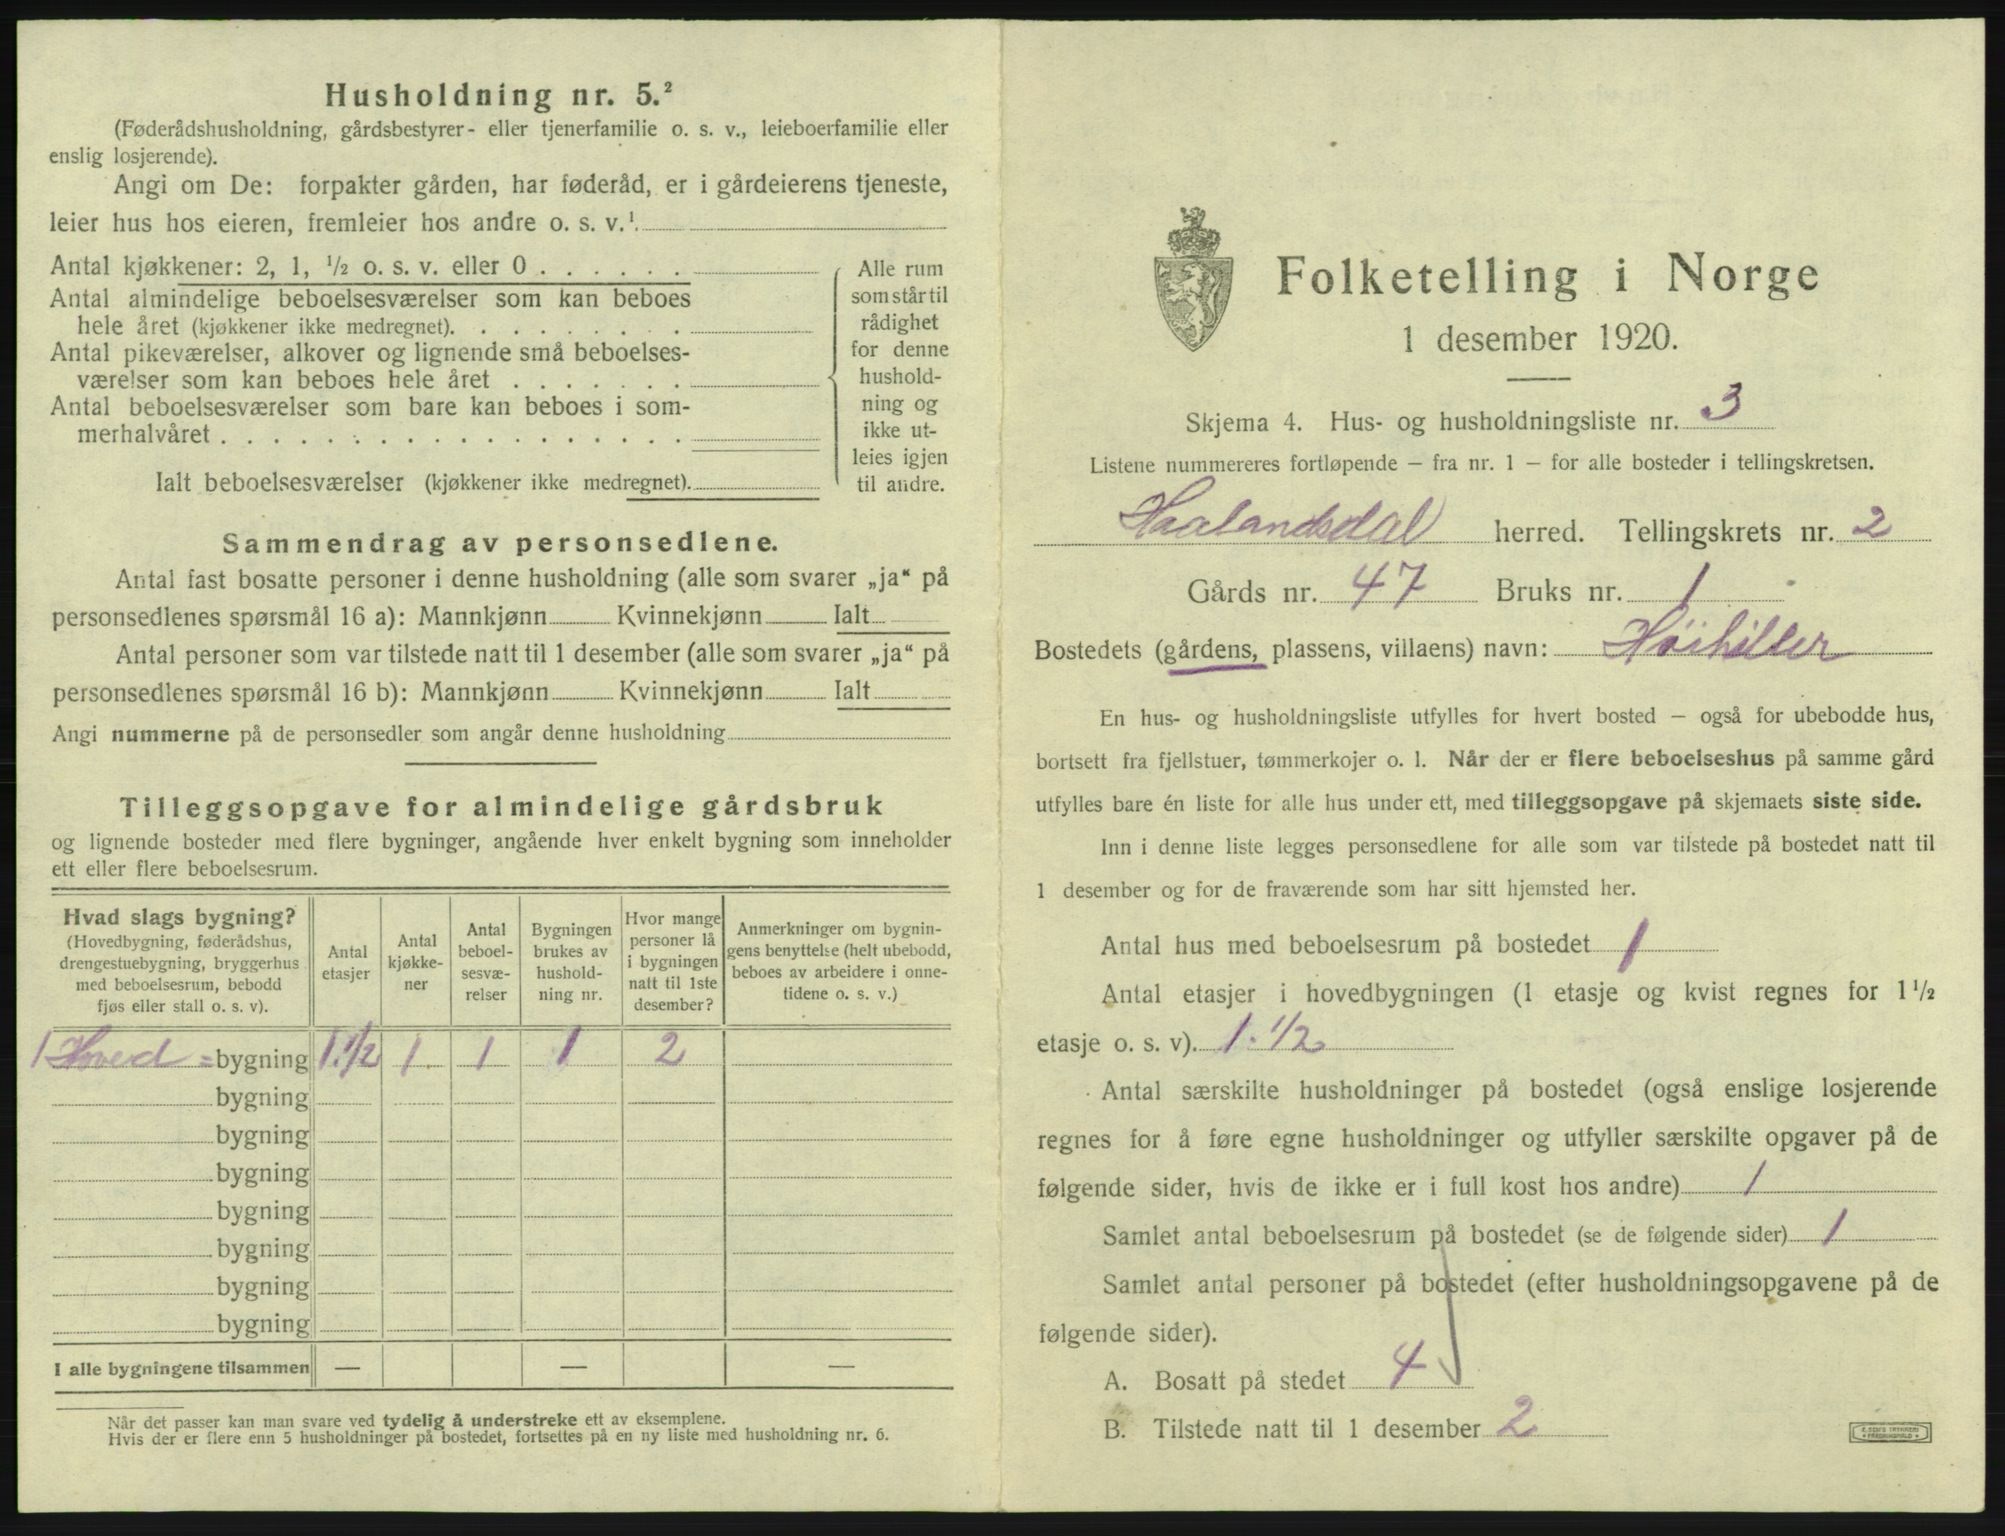 Husholdning nr. 5.²
(Føderådshusholdning, gårdsbestyrer- eller tjenerfamilie o. s. v., leieboerfamilie eller
enslig losjerende).
Angi om De: forpakter gården, har føderåd, er i gårdeierens tjeneste,
leier hus hos eieren, fremleier hos andre o. s. v.¹.
Antal kjøkkener: 2, 1, ½ o. s. v. eller 0 . . . . . .
Antal almindelige beboelsesværelser som kan beboes
hele året (kjøkkener ikke medregnet). . . . . . . .
Antal pikeværelser, alkover og lignende små beboelses-
værelser som kan beboes hele året . . . . . . .
Antal beboelsesværelser som bare kan beboes i som-
merhalvåret . . . . . . . . . . . . . . . . . .
Ialt beboelsesværelser (kjøkkener ikke medregnet).
Alle rum
som står til
rådighet
for denne
hushold-
ning og
ikke ut-
leies igjen
til andre.
Sammendrag av personsedlene.
Antal fast bosatte personer i denne husholdning (alle som svarer „ja“ på
personsedlenes spørsmål 16 a): Mannkjønn Kvinnekjønn Ialt
Antal personer som var tilstede natt til 1 desember (alle som svarer „ja“ på
personsedlenes spørsmål 16 b): Mannkjønn Kvinnekjønn Ialt
Angi nummerne på de personsedler som angår denne husholdning
Tilleggsopgave for almindelige gårdsbruk
og lignende bosteder med flere bygninger, angående hver enkelt bygning som inneholder
ett eller flere beboelsesrum.
Hvad slags bygning?
(Hovedbygning, føderådshus,
drengestuebygning, bryggerhus
med beboelsesrum, bebodd
fjøs eller stall o. s. v).
Antal
etasjer
Antal
kjøkke-
ner
Antal
beboel-
sesvæ-
relser
Bygningen
brukes av
hushold-
ning nr.
Hvor mange
personer lå
i bygningen
natt til 1ste
desember?
Anmerkninger om bygnin-
gens benyttelse (helt ubebodd,
beboes av arbeidere i onne-
tidene o. s. v.)
1 Hoved = bygning 1.½ 1 1 1 2
bygning
bygning
bygning
bygning
bygning
bygning
bygning
I alle bygningene tilsammen — — —
Når det passer kan man svare ved tydelig å understreke ett av eksemplene.
Hvis der er flere enn 5 husholdninger på bostedet, fortsettes på en ny liste med husholdning nr. 6.
Folketelling i Norge
1 desember 1920.
Skjema 4. Hus- og husholdningsliste nr. 3
Listene nummereres fortløpende — fra nr. 1 — for alle bosteder i tellingskretsen.
Haalandsdal herred. Tellingskrets nr. 2
Gårds nr. 47 Bruks nr. 1
Bostedets (gårdens, plassens, villaens) navn: Høihiller
En hus- og husholdningsliste utfylles for hvert bosted — også for ubebodde hus,
bortsett fra fjellstuer, tømmerkojer o. l. Når der er flere beboelseshus på samme gård
utfylles bare én liste for alle hus under ett, med tilleggsopgave på skjemaets siste side.
Inn i denne liste legges personsedlene for alle som var tilstede på bostedet natt til
1 desember og for de fraværende som har sitt hjemsted her.
Antal hus med beboelsesrum på bostedet 1
Antal etasjer i hovedbygningen (1 etasje og kvist regnes for 1½
etasje o. s. v). 1.½
Antal særskilte husholdninger på bostedet (også enslige losjerende
regnes for å føre egne husholdninger og utfyller særskilte opgaver på de
følgende sider, hvis de ikke er i full kost hos andre) 1
Samlet antal beboelsesrum på bostedet (se de følgende sider) 1
Samlet antal personer på bostedet (efter husholdningsopgavene på de
følgende sider).
A. Bosatt på stedet 4
B. Tilstede natt til 1 desember 2